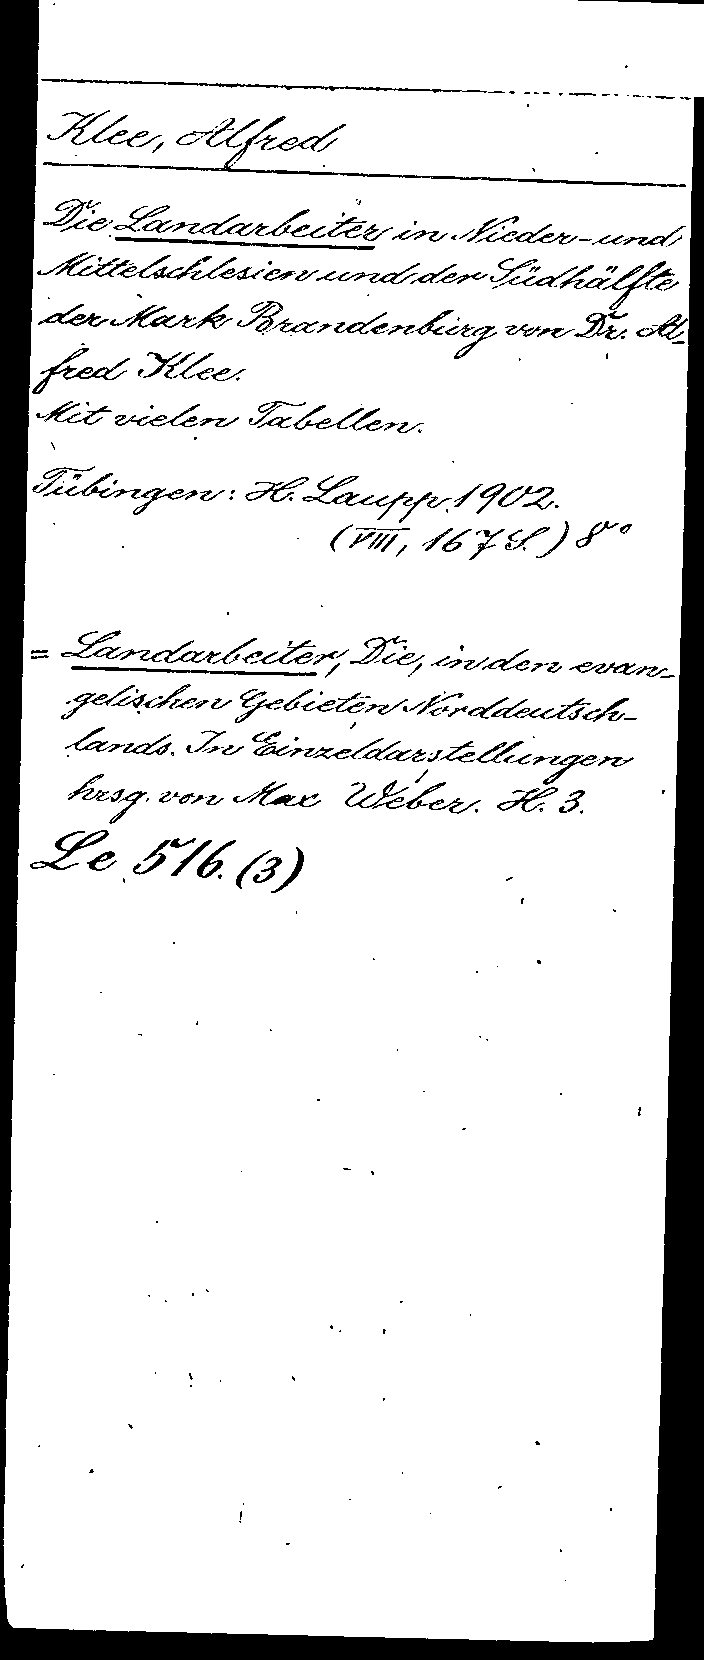 Klee, Alfred
Die Landarbeiter in Nieder- und
Mittelschlesien und der Südhälfte
der Mark Brandenburg von Dr. Al-
fred Klee.
Mit vielen Tabellen.
Tübingen: H. Laupp 1902.
(VIII, 167 S.) 8°
= Landarbeiter, Die, in den evan-
gelischen Gebieten Norddeutsch-
lands. In Einzeldarstellungen
hrsg. von Max Weber. H. 3.
Le 516. (3)